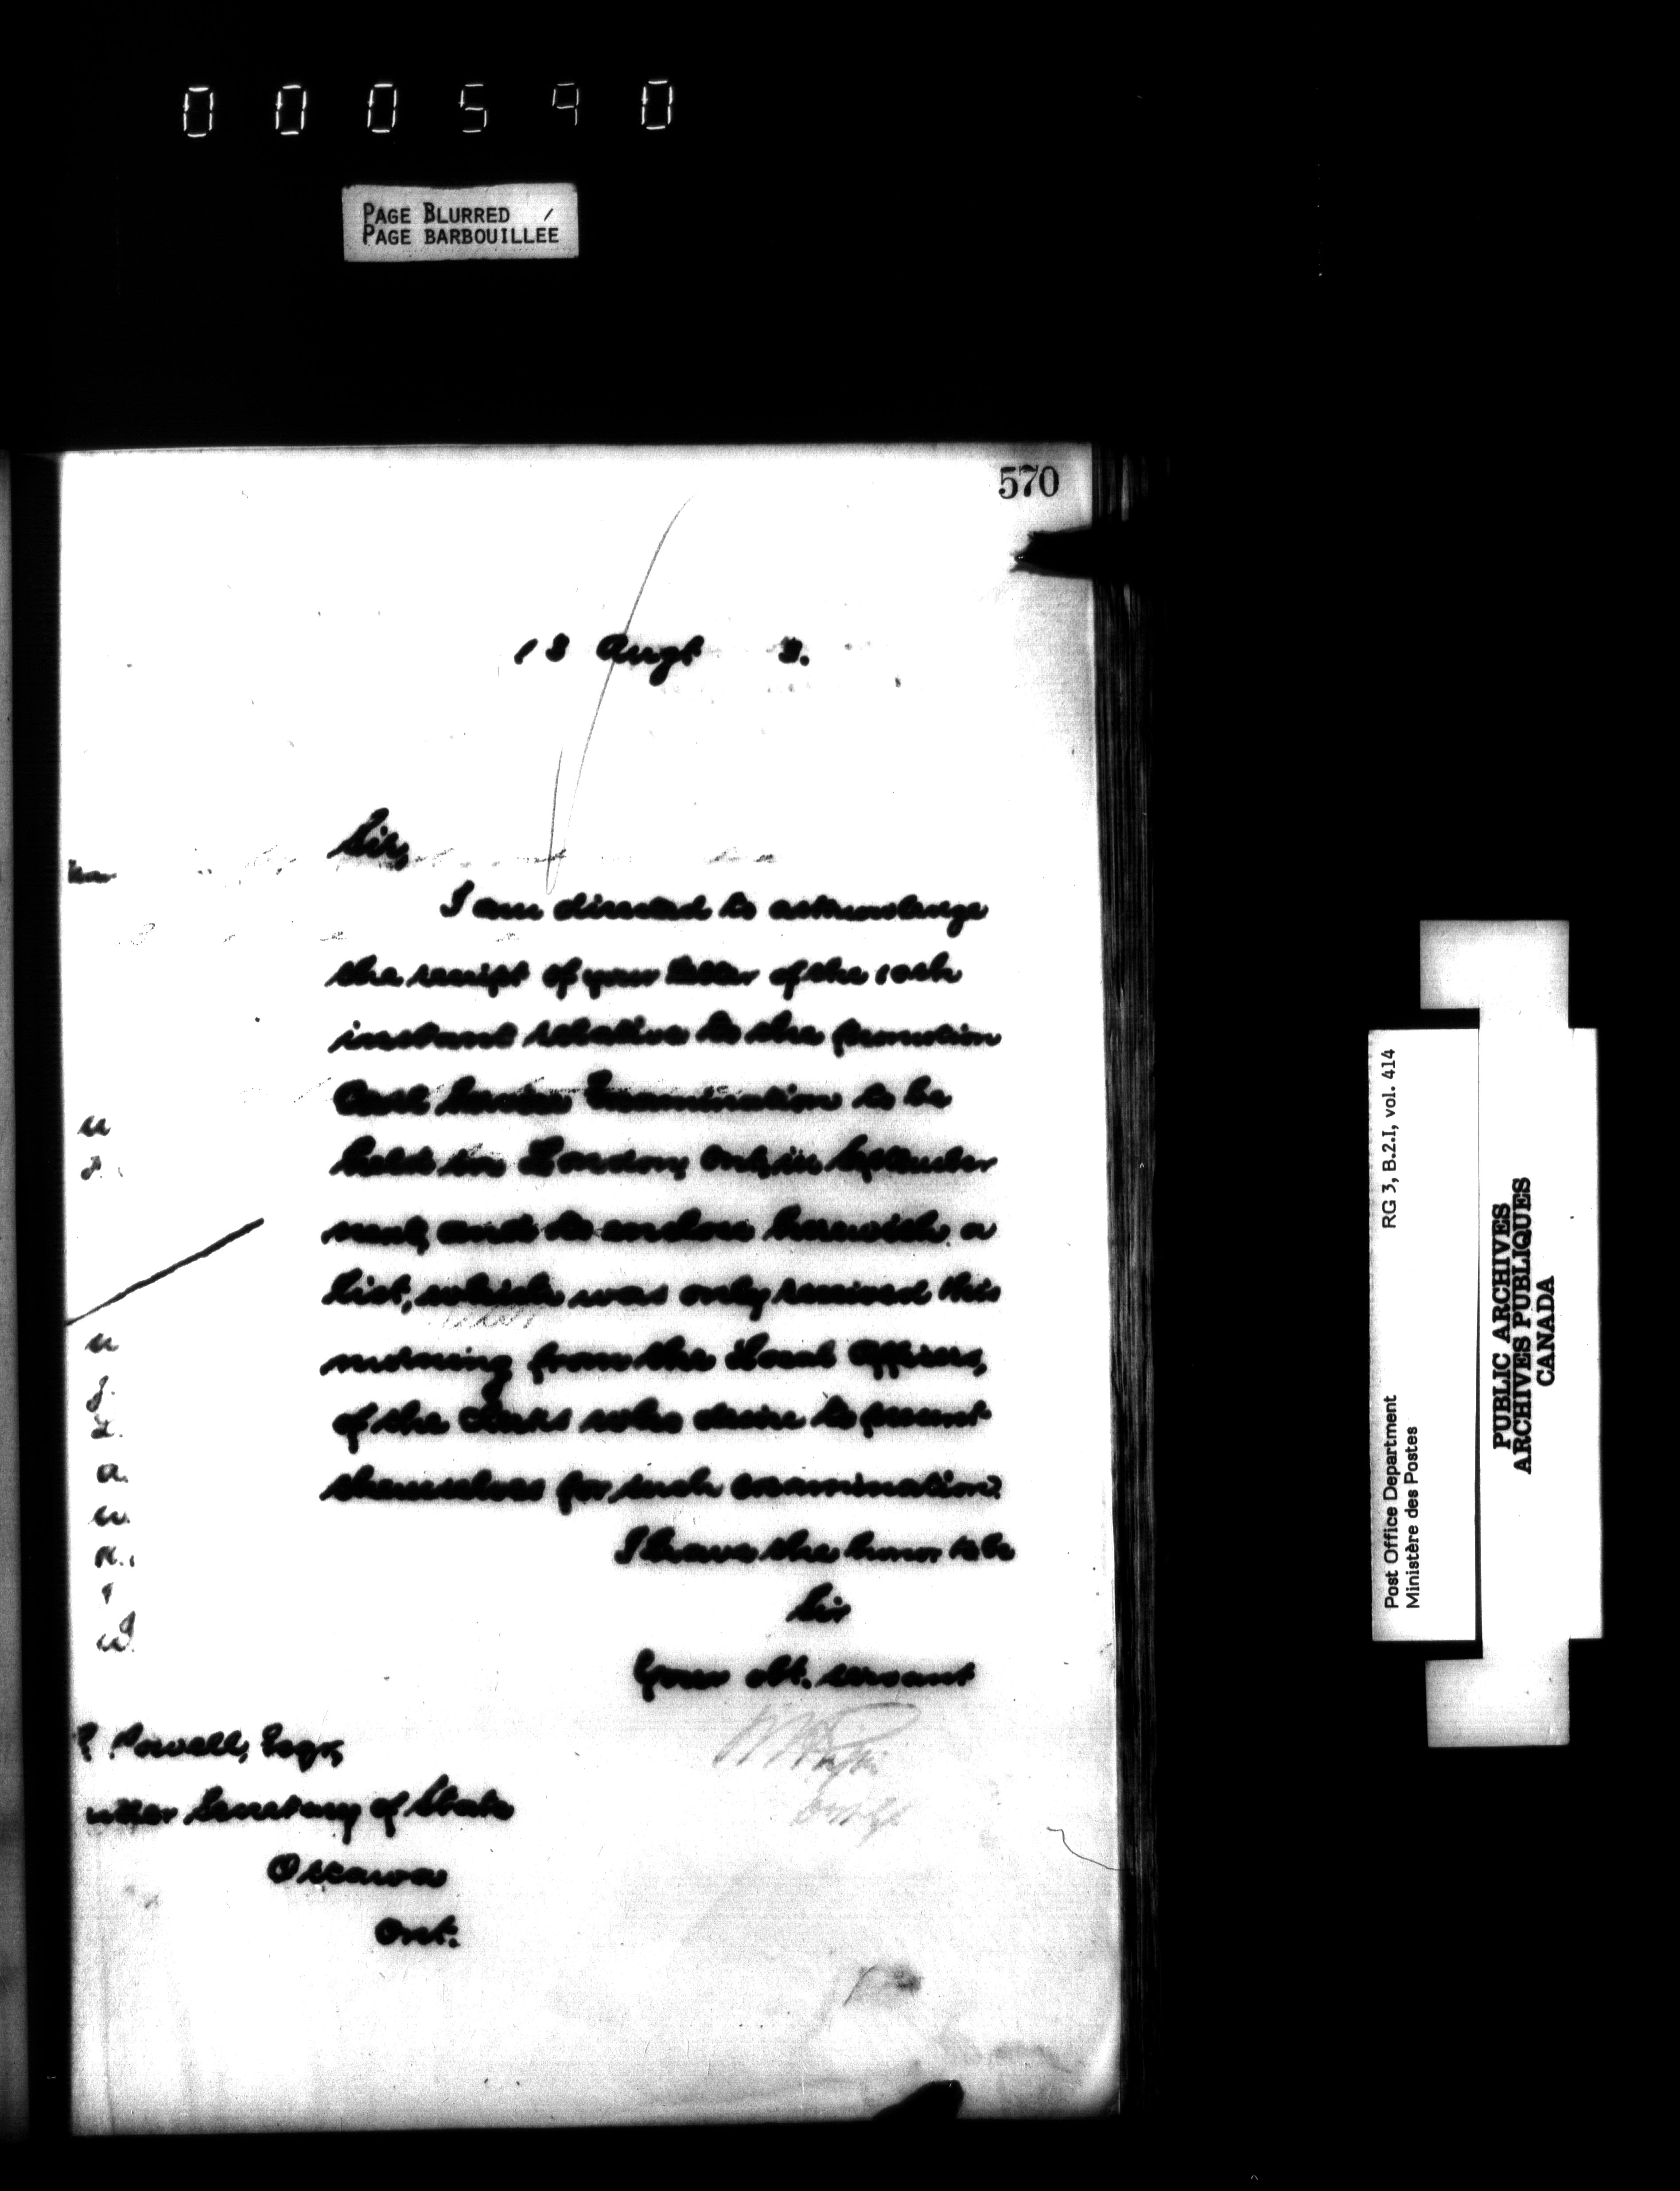 000590
PAGE BLURRED
PAGE BARBOUILLÉE
570
13 Augt 3.
Sir,
I am directed to acknowledge
the receipt of your letter of the 10th
instant relative to the promotion
Civil Service Examination to be
held in London, Ont, in September
next, and to enclose herewith a
list, which was only received this
morning from the Local Officers,
of the Clerks who desire to present
themselves for such examination.
I have the honor to be
Sir
Your obt. servant
Powell, Esqr,
Under Secretary of State
Ottawa
Ont.
Post Office Department
Ministère des Postes
RG 3, B.2.I, vol. 414
PUBLIC ARCHIVES
ARCHIVES PUBLIQUES
CANADA